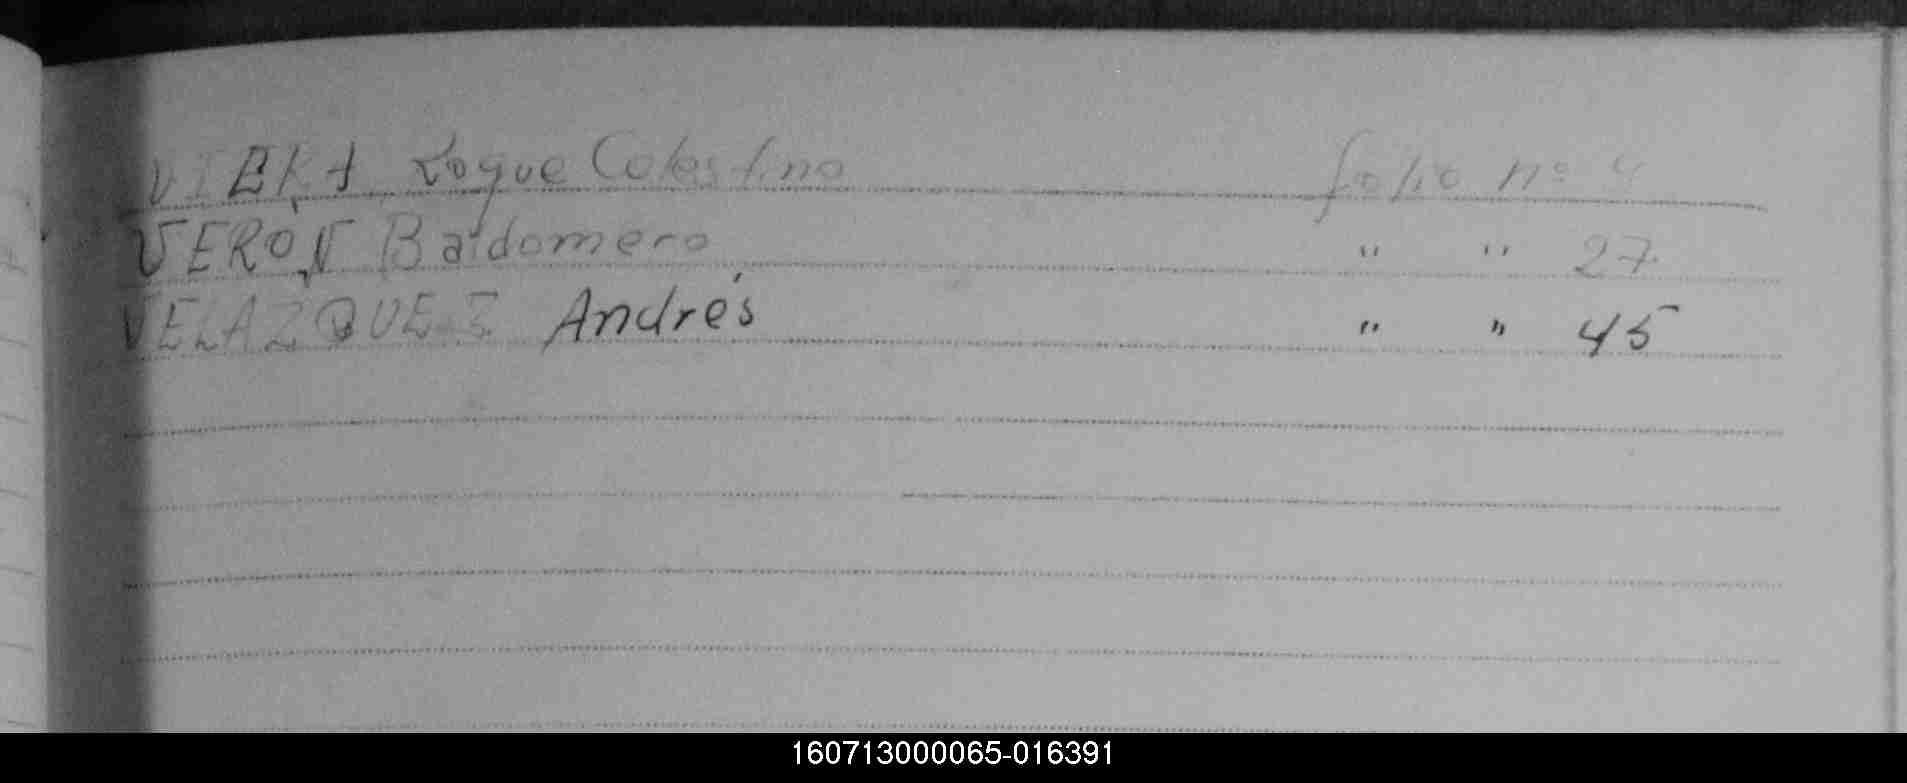 VIERA Roque Celestino folio nº 4
VERÓN Baldomero " " 27
VELAZQUEZ Andrés " " 45
160713000065-016391